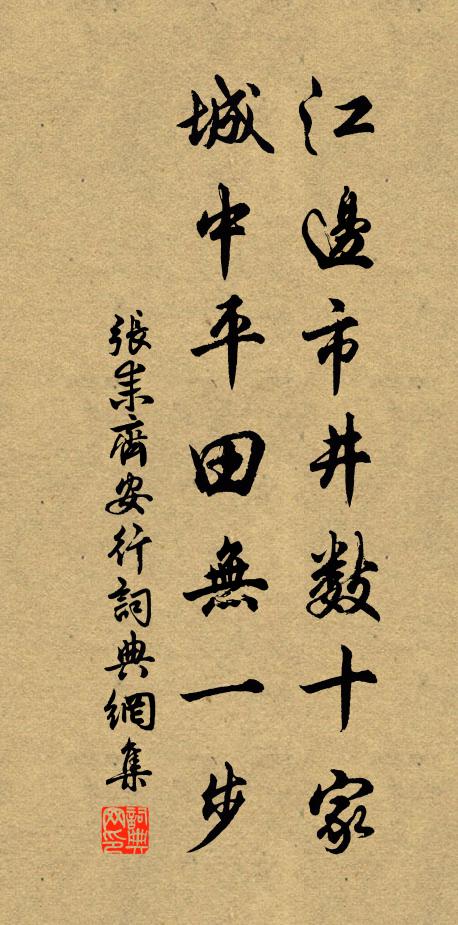 江邊市井數十家
城中平田無一步
張耒齊安行詞典網集
詞典网印